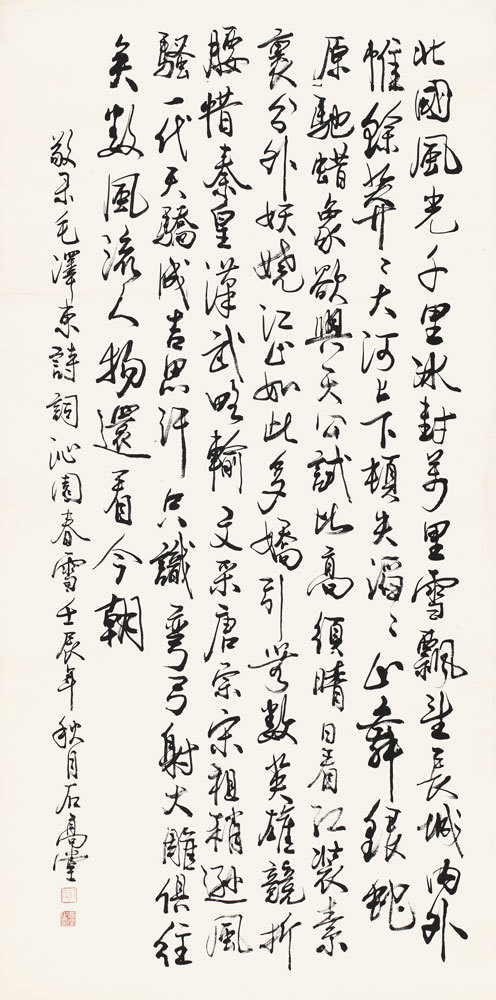 北國風光千里冰封萬里雪飄望長城內外
惟餘莽〻大河上下頓失滔〻山舞銀蛇
原馳蜡象欲與天公試比高須晴日看紅裝素
裹分外妖嬈江山如此多嬌引無數英雄競折
腰惜秦皇漢武略輸文采唐宗宋祖稍遜風
騷一代天驕成吉思汗只識彎弓射大雕俱往
矣数風流人物還看今朝
敬录毛澤東詩詞沁園春雪壬辰年秋月石高堂